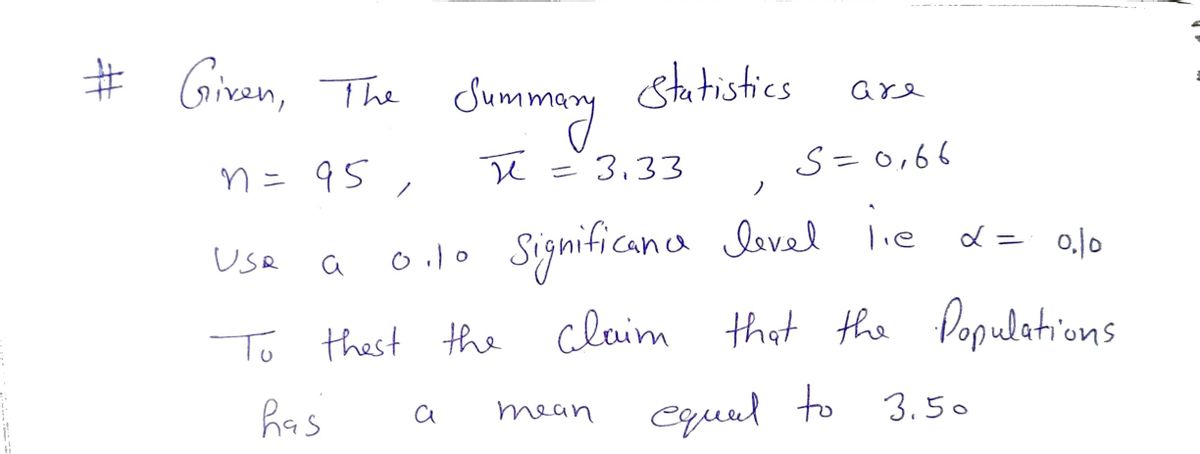 # Given, The Summary Statistics are
n = 95, x̄ = 3.33, S = 0.66
Use a 0.10 Significance level i.e α = 0.10
To thest the claim that the Populations
has a mean equal to 3.50